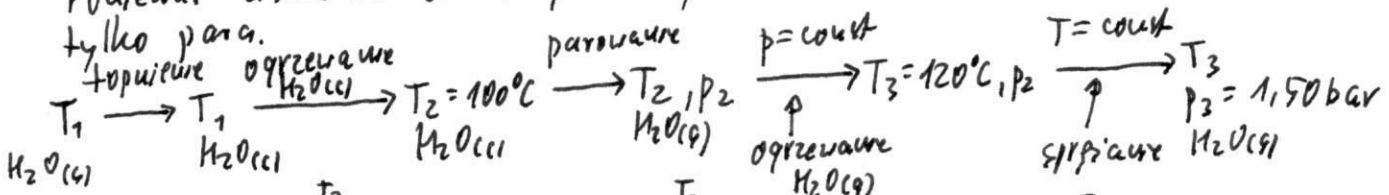 tylko para.
topnienie ogrzewanie H₂O(c) parowanie p=const T=const
T₁ → T₁ → T₂=100°C → T₂,p₂ → T₃=120°C,p₂ → T₃
H₂O(s) H₂O(c) H₂O(c) H₂O(g) ogrzewanie H₂O(g) sprężanie p₃=1,50bar H₂O(g)